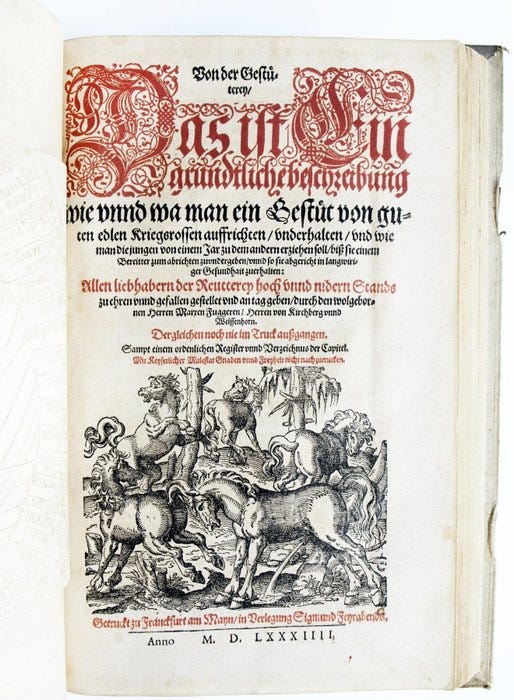 Von der Gestü-
terey/
Das ist Ein
gründtliche beschreibung
wie vnnd wa man ein Gestüt von gu-
ten edlen Kriegsrossen auffrichten / vnderhalten / vnd wie
man die jungen von einem Jar zu dem andern erziehen soll / biß sie einem
Bereitter zum abrichten zuvndergeben / vnnd so sie abgericht in langwiri-
ger Gesundhait zuerhalten:
Allen liebhabern der Reutterey hoch vnnd nidern Stands
zu ehren vnnd gefallen gestellet vnd an tag geben / durch den wolgebor-
nen Herren Marxen Fuggeren / Herren von Kirchberg vnnd
Weissenhorn.
Dergleichen noch nie im Truck außgangen.
Sampt einem ordenlichen Register vnnd Verzeichnus der Capitel.
Mit Keyserlicher Maiestat Gnaden vnnd Freyheit nicht nachzutrucken.
Getruckt zu Franckfurt am Mayn / in Verlegung Sigmund Feyrabends.
Anno M. D. LXXXIIII.